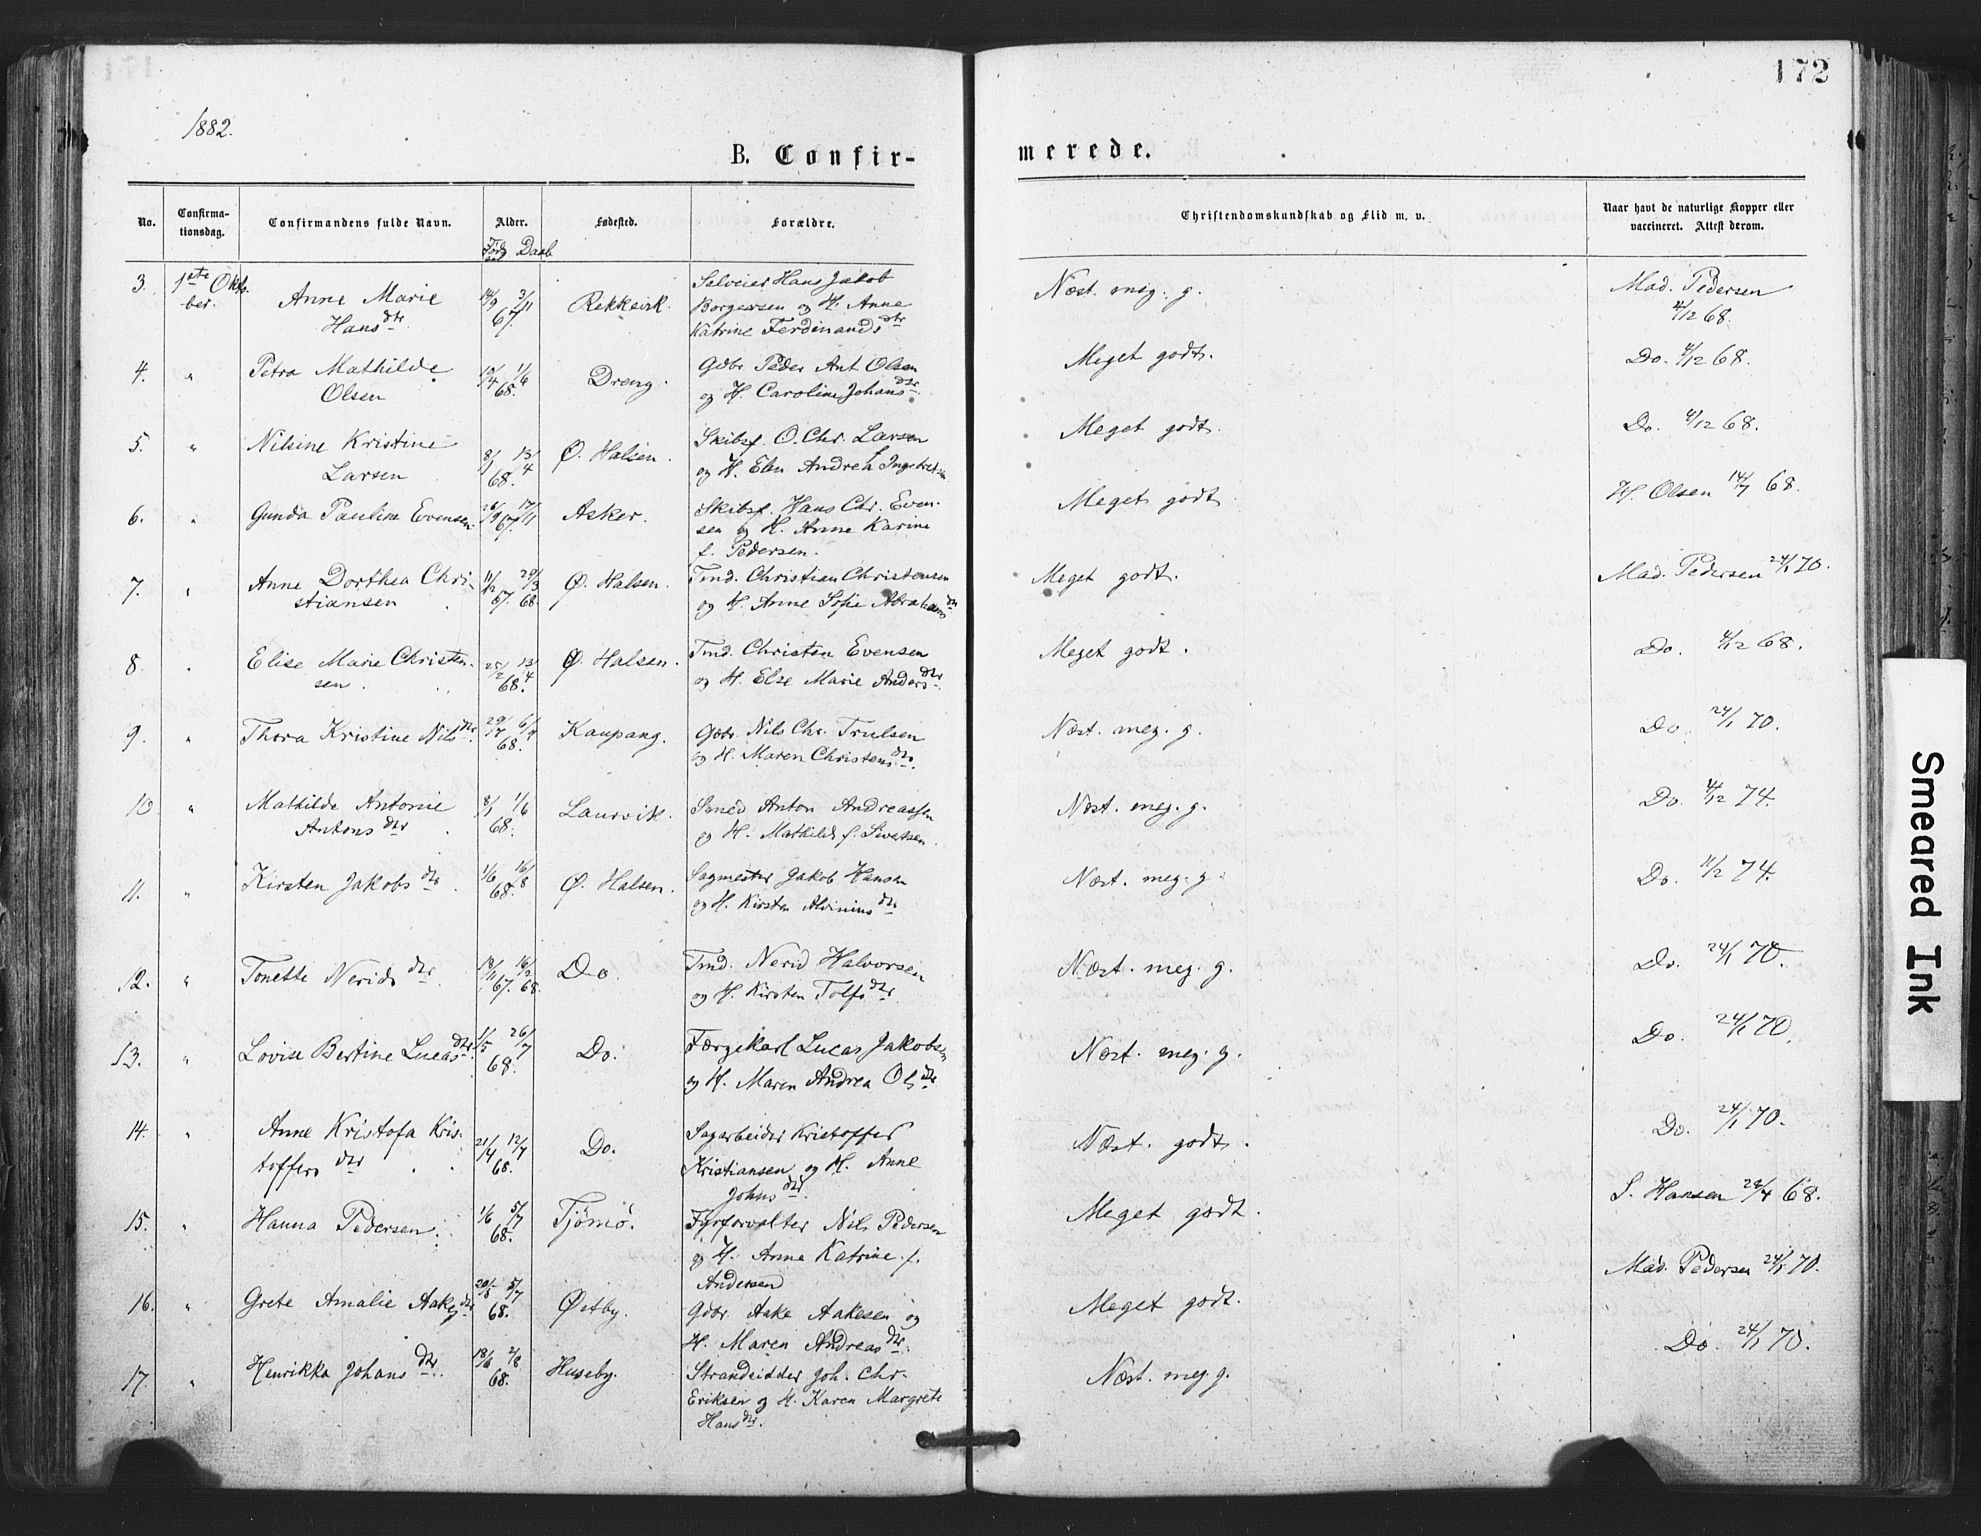 172
1882.
B. Confir-
merede.
No.
Confirma-
tionsdag.
Confirmandens fulde Navn.
Alder.
Fødested.
Forældre.
Christendomskundskab og Flid m. v.
Naar havt de naturlige Kopper eller
vaccineret. Attest derom.
Daab
3. 1ste Oktb. Anne Marie 14/9 3/11 Rekkevik. Selveier Hans Jakob Næst. meg. g. Mad. Pedersen
ber. Hansdtr 67. Borgersen og H. Anne 4/12 68.
Katrine Ferdinandsdtr
4. " Petra Mathilde 19/4 1/6 Dreng. Gdbr. Peder Ant. Olsen Meget godt. Do. 4/12 68.
Olsen 68. og H. Caroline Johansdtr.
5. " Nilsine Kristine 8/1 13/4 Ø. Halsen. Skibsf. O. Chr. Larsen Meget godt. Do. 4/12 68.
Larsen 68. og H. Elen Andrea Ingebretsen
6. " Gunda Pauline Evensen. 26/9 17/11 67. Asker. Skibsf. Hans Chr. Even- Meget godt H. Olsen 14/7 68.
sen og H. Anne Karine
f. Pedersen.
7. " Anne Dorthea Chri- 11/12 29/3 Ø. Halsen. Tmd. Christian Christensen Meget godt. Mad. Pedersen 24/1 70.
stiansen 67. 68. og H. Anne Sofie Abrahamsdtr
8. " Elise Marie Christen- 25/2 13/4 Ø. Halsen. Tmd. Christen Evensen Meget godt. Do. 4/12 68.
sen. 68. og H. Else Marie Andersdtr.
9. " Thora Kristine Nilsdtr. 29/4 6/7 Kaupang. Gdbr. Nils Chr. Trulsen Næst. meg. g. Do. 24/1 70.
68. og H. Maren Christensdtr.
10 " Mathilde Antonie 8/1 1/6 Laurvik. Smed Anton Andreassen Næst. meg. g. Do. 4/12 74.
Antonsdtr. 68. og H. Mathilde f. Sivertsen.
11. " Kirsten Jakobsdtr. 1/6 16/8 Ø. Halsen. Sagmester Jakob Hansen Næst. meg. g. Do. 11/2 74.
68. og H. Kirsten Alviniusdtr
12. " Tonette Neridsdtr 18/11 16/2 Do. Tmd. Nerid Halvorsen Næst. meg. g. Do. 24/1 70.
67. 68. og H. Kirsten Tolfsdtr.
13. " Lovise Bertine Lucasdtr. 1/5 26/7 Do. Færgekarl Lucas Jakobsen Næst. meg. g. Do. 24/1 70.
68. og H. Maren Andrea Olsdtr
14. " Anne Kristofa Kris- 21/4 12/7 Do. Sagarbeider Kristoffer Næst. godt. Do. 24/1 70.
toffersdtr 68. Kristiansen og H. Anne
Johnsdtr.
15. " Hanna Pedersen. 1/6 5/7 Tjömö. Fyrforvalter Nils Pedersen Meget godt. S. Hansen 24/4 68.
68. og H. Anne Katrine f.
Andersen
16. " Grete Amalie Aakesdtr 20/5 5/7 Østby. Gdbr. Aake Aakesen og Meget godt. Mad. Pedersen 24/1 70.
68. H. Maren Andreasdtr.
17. " Henrikka Johansdtr. 18/6 2/8 Huseby. Strandsidder Joh. Chr. Næst. meg. g. Do. 24/1 70.
68. Eriksen og H. Karen Margrete
Hansdtr.
Smeared Ink